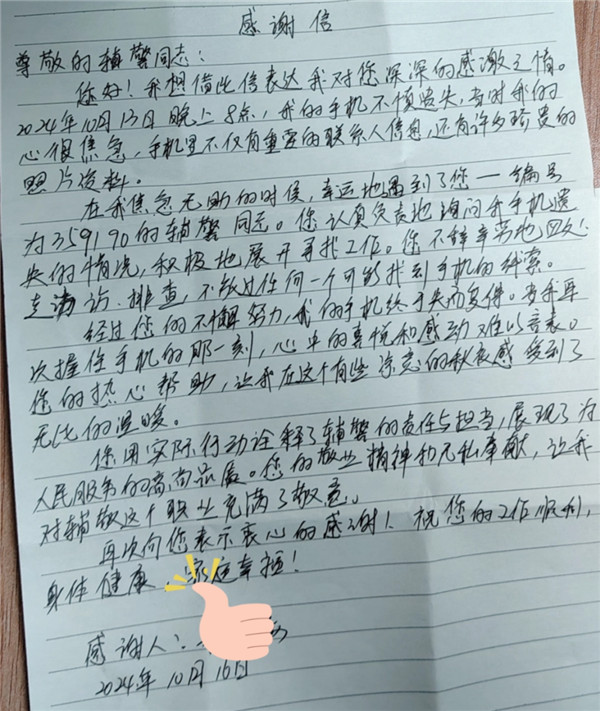 感谢信
尊敬的辅警同志：
您好！我想借此信表达我对您深深的感激之情。
2024年10月13日晚上8点，我的手机不慎遗失，当时我的
心很焦急，手机里不仅有重要的联系人信息，还有许多珍贵的
照片资料。
在我焦急无助的时候，幸运地遇到了您一编号
为359190的辅警同志。您认真负责地询问我手机遗
失的情况，积极地展开寻找工作。您不辞辛劳地四处
走访、排查，不放过任何一个可能找到手机的线索。
经过您的不懈努力，我的手机终于失而复得。当我再
次握住手机的那一刻，心中的喜悦和感动难以言表。
您的热心帮助，让我在这个有些凉意的秋夜感受到了
无比的温暖。
您用实际行动诠释了辅警的责任与担当，展现了为
人民服务的高尚品质。您的敬业精神和无私奉献，让我
对辅警这个职业充满了敬意。
再次向您表示衷心的感谢！祝您的工作顺利，
身体健康、家庭幸福！
感谢人：
2024年10月16日